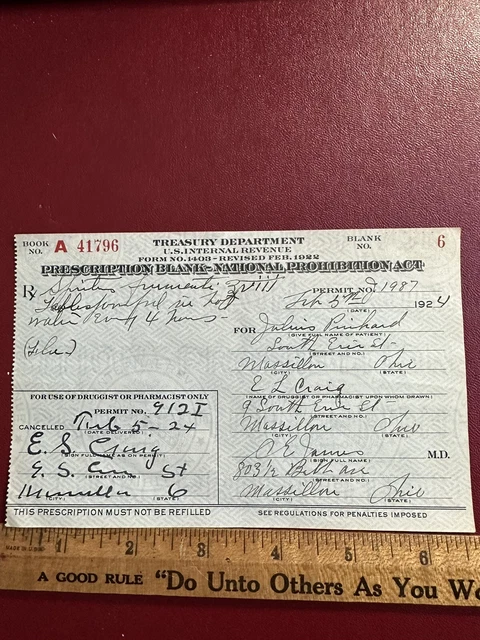 BOOK NO. A 41796
TREASURY DEPARTMENT
U.S. INTERNAL REVENUE
FORM NO. 1403 - REVISED FEB. 1922
BLANK NO. 6
PRESCRIPTION BLANK - NATIONAL PROHIBITION ACT
Rx Spiritus frumenti
Tablespoonful in hot
water Every 4 hours -
PERMIT NO. 1987
Feb 5th 1924
(DATE)
FOR Julius
(GIVE FULL NAME OF PATIENT)
South Erie St
(STREET AND NO.)
Massillon Ohio
(CITY) (STATE)
E L Craig
(NAME OF DRUGGIST OR PHARMACIST UPON WHOM DRAWN)
9 South Erie St
(STREET AND NO.)
Massillon Ohio
(CITY) (STATE)
James M.D.
(SIGN FULL NAME)
803 1/2
(STREET AND NO.)
Massillon Ohio
(CITY) (STATE)
FOR USE OF DRUGGIST OR PHARMACIST ONLY
PERMIT NO. 912I
CANCELLED Feb 5-24
(DATE DELIVERED)
Craig
(SIGN FULL NAME AS ON PERMIT)
St
(STREET AND NO.)
Massillon
(CITY) (STATE)
THIS PRESCRIPTION MUST NOT BE REFILLED
SEE REGULATIONS FOR PENALTIES IMPOSED
MADE IN U.S.A.
1 2 3 4 5 6
A GOOD RULE "Do Unto Others As You